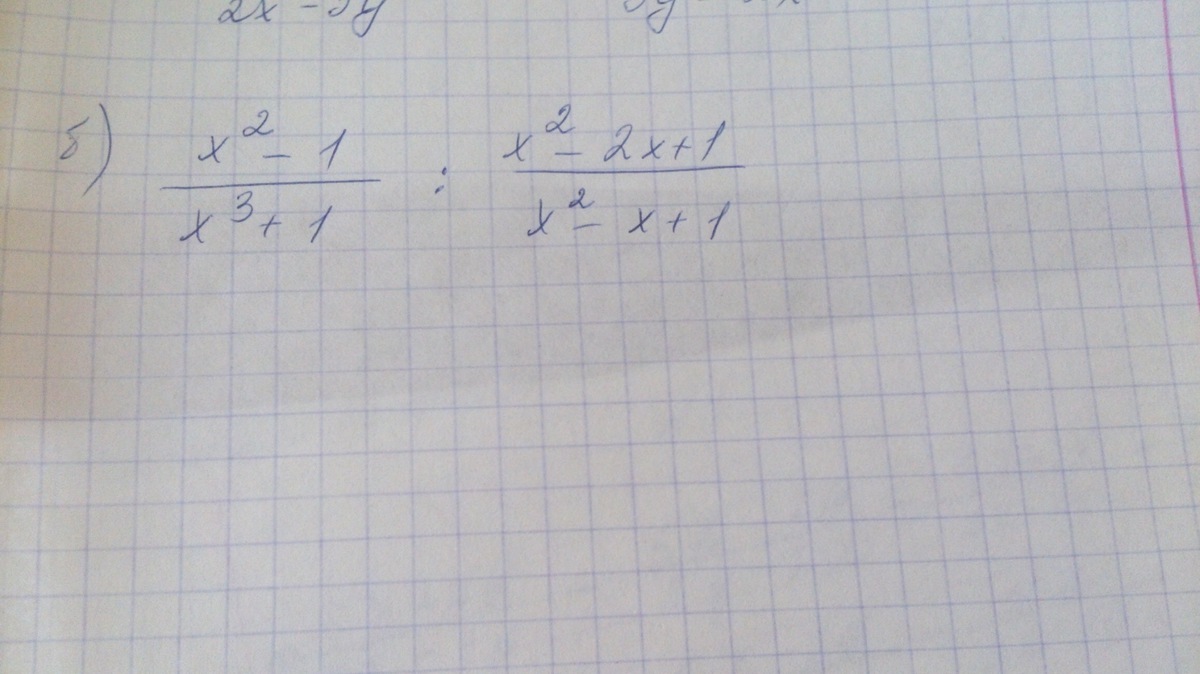 2x - 3y
б) x² - 1 / x³ + 1 : x² - 2x + 1 / x² - x + 1